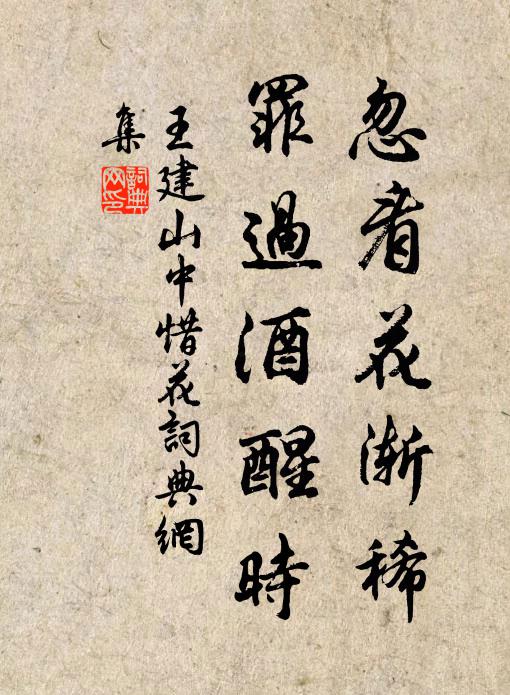 忽看花渐稀
罪過酒醒時
王建山中惜花詞典網
集
詞典
网印